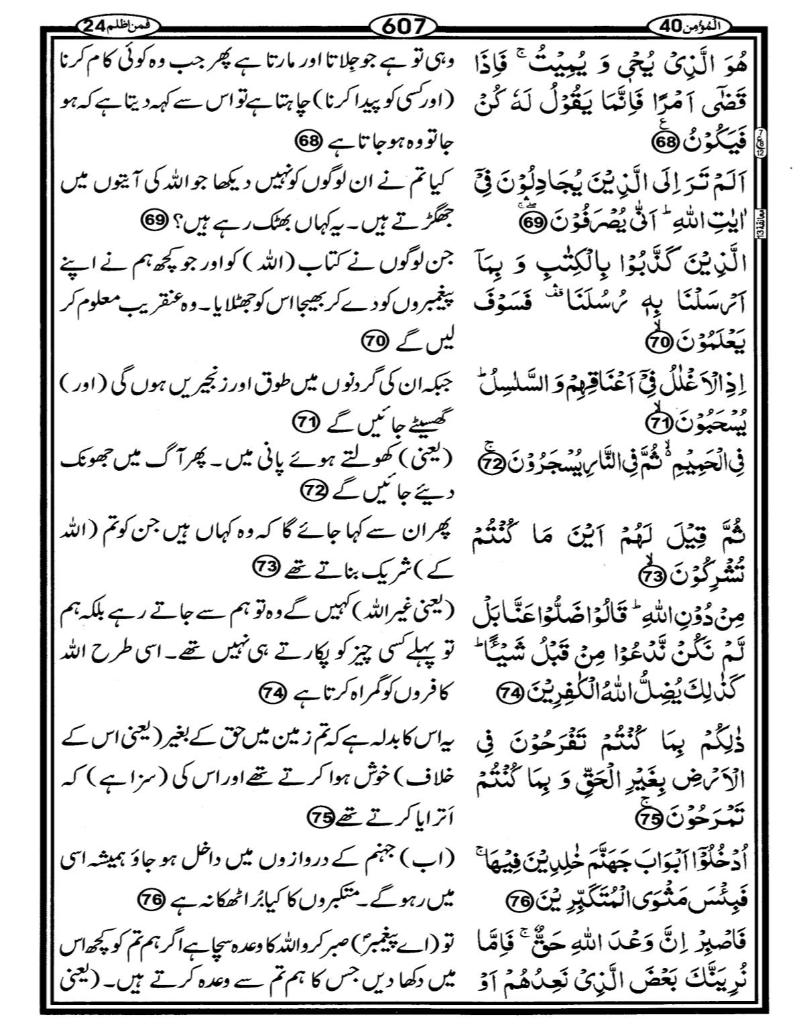 المؤمن 40
607
فمن اظلم 24
هُوَ الَّذِیْ یُحْیٖ وَ یُمِیْتُ ۚ فَاِذَا
قَضٰۤی اَمْرًا فَاِنَّمَا یَقُوْلُ لَهٗ كُنْ
فَیَكُوْنُ 68
وہی تو ہے جو جِلاتا اور مارتا ہے پھر جب وہ کوئی کام کرنا
(اور کسی کو پیدا کرنا) چاہتا ہے تو اس سے کہہ دیتا ہے کہ ہو
جا تو وہ ہو جاتا ہے 68
اَلَمْ تَرَ اِلَی الَّذِیْنَ یُجَادِلُوْنَ فِیْۤ
اٰیٰتِ اللّٰهِ ؕ اَنّٰی یُصْرَفُوْنَ 69
کیا تم نے ان لوگوں کو نہیں دیکھا جو اللہ کی آیتوں میں
جھگڑتے ہیں۔ یہ کہاں بھٹک رہے ہیں؟ 69
الَّذِیْنَ كَذَّبُوْا بِالْكِتٰبِ وَ بِمَاۤ
اَرْسَلْنَا بِهٖ رُسُلَنَا ۛ۫ فَسَوْفَ
یَعْلَمُوْنَ 70
جن لوگوں نے کتاب (اللہ) کو اور جو کچھ ہم نے اپنے
پیغمبروں کو دے کر بھیجا اس کو جھٹلایا۔ وہ عنقریب معلوم کر
لیں گے 70
اِذِ الْاَغْلٰلُ فِیْۤ اَعْنَاقِهِمْ وَ السَّلٰسِلُ ؕ
یُسْحَبُوْنَ 71
جبکہ ان کی گردنوں میں طوق اور زنجیریں ہوں گی (اور)
گھسیٹے جائیں گے 71
فِی الْحَمِیْمِ ۙ۬ ثُمَّ فِی النَّارِ یُسْجَرُوْنَ 72
(یعنی) کھولتے ہوئے پانی میں۔ پھر آگ میں جھونک
دیئے جائیں گے 72
ثُمَّ قِیْلَ لَهُمْ اَیْنَ مَا كُنْتُمْ
تُشْرِكُوْنَ 73
پھر ان سے کہا جائے گا کہ وہ کہاں ہیں جن کو تم (اللہ
کے) شریک بناتے تھے 73
مِنْ دُوْنِ اللّٰهِ ؕ قَالُوْا ضَلُّوْا عَنَّا بَلْ
لَّمْ نَكُنْ نَّدْعُوْا مِنْ قَبْلُ شَیْـًٔا ؕ
كَذٰلِكَ یُضِلُّ اللّٰهُ الْكٰفِرِیْنَ 74
(یعنی غیر اللہ) کہیں گے وہ تو ہم سے جاتے رہے بلکہ ہم
تو پہلے کسی چیز کو پکارتے ہی نہیں تھے۔ اسی طرح اللہ
کافروں کو گمراہ کرتا ہے 74
ذٰلِكُمْ بِمَا كُنْتُمْ تَفْرَحُوْنَ فِی
الْاَرْضِ بِغَیْرِ الْحَقِّ وَ بِمَا كُنْتُمْ
تَمْرَحُوْنَ 75
یہ اس کا بدلہ ہے کہ تم زمین میں حق کے بغیر (یعنی اس کے
خلاف) خوش ہوا کرتے تھے اور اس کی (سزا ہے) کہ
اَترایا کرتے تھے 75
اُدْخُلُوْۤا اَبْوَابَ جَهَنَّمَ خٰلِدِیْنَ فِیْهَا ۚ
فَبِئْسَ مَثْوَی الْمُتَكَبِّرِیْنَ 76
(اب) جہنم کے دروازوں میں داخل ہو جاؤ ہمیشہ اسی
میں رہو گے۔ متکبروں کا کیا بُرا ٹھکانہ ہے 76
فَاصْبِرْ اِنَّ وَعْدَ اللّٰهِ حَقٌّ ۚ فَاِمَّا
نُرِیَنَّكَ بَعْضَ الَّذِیْ نَعِدُهُمْ اَوْ
تو (اے پیغمبرؐ) صبر کرو اللہ کا وعدہ سچا ہے اگر ہم تم کو کچھ اس
میں دکھا دیں جس کا ہم تم سے وعدہ کرتے ہیں۔ (یعنی